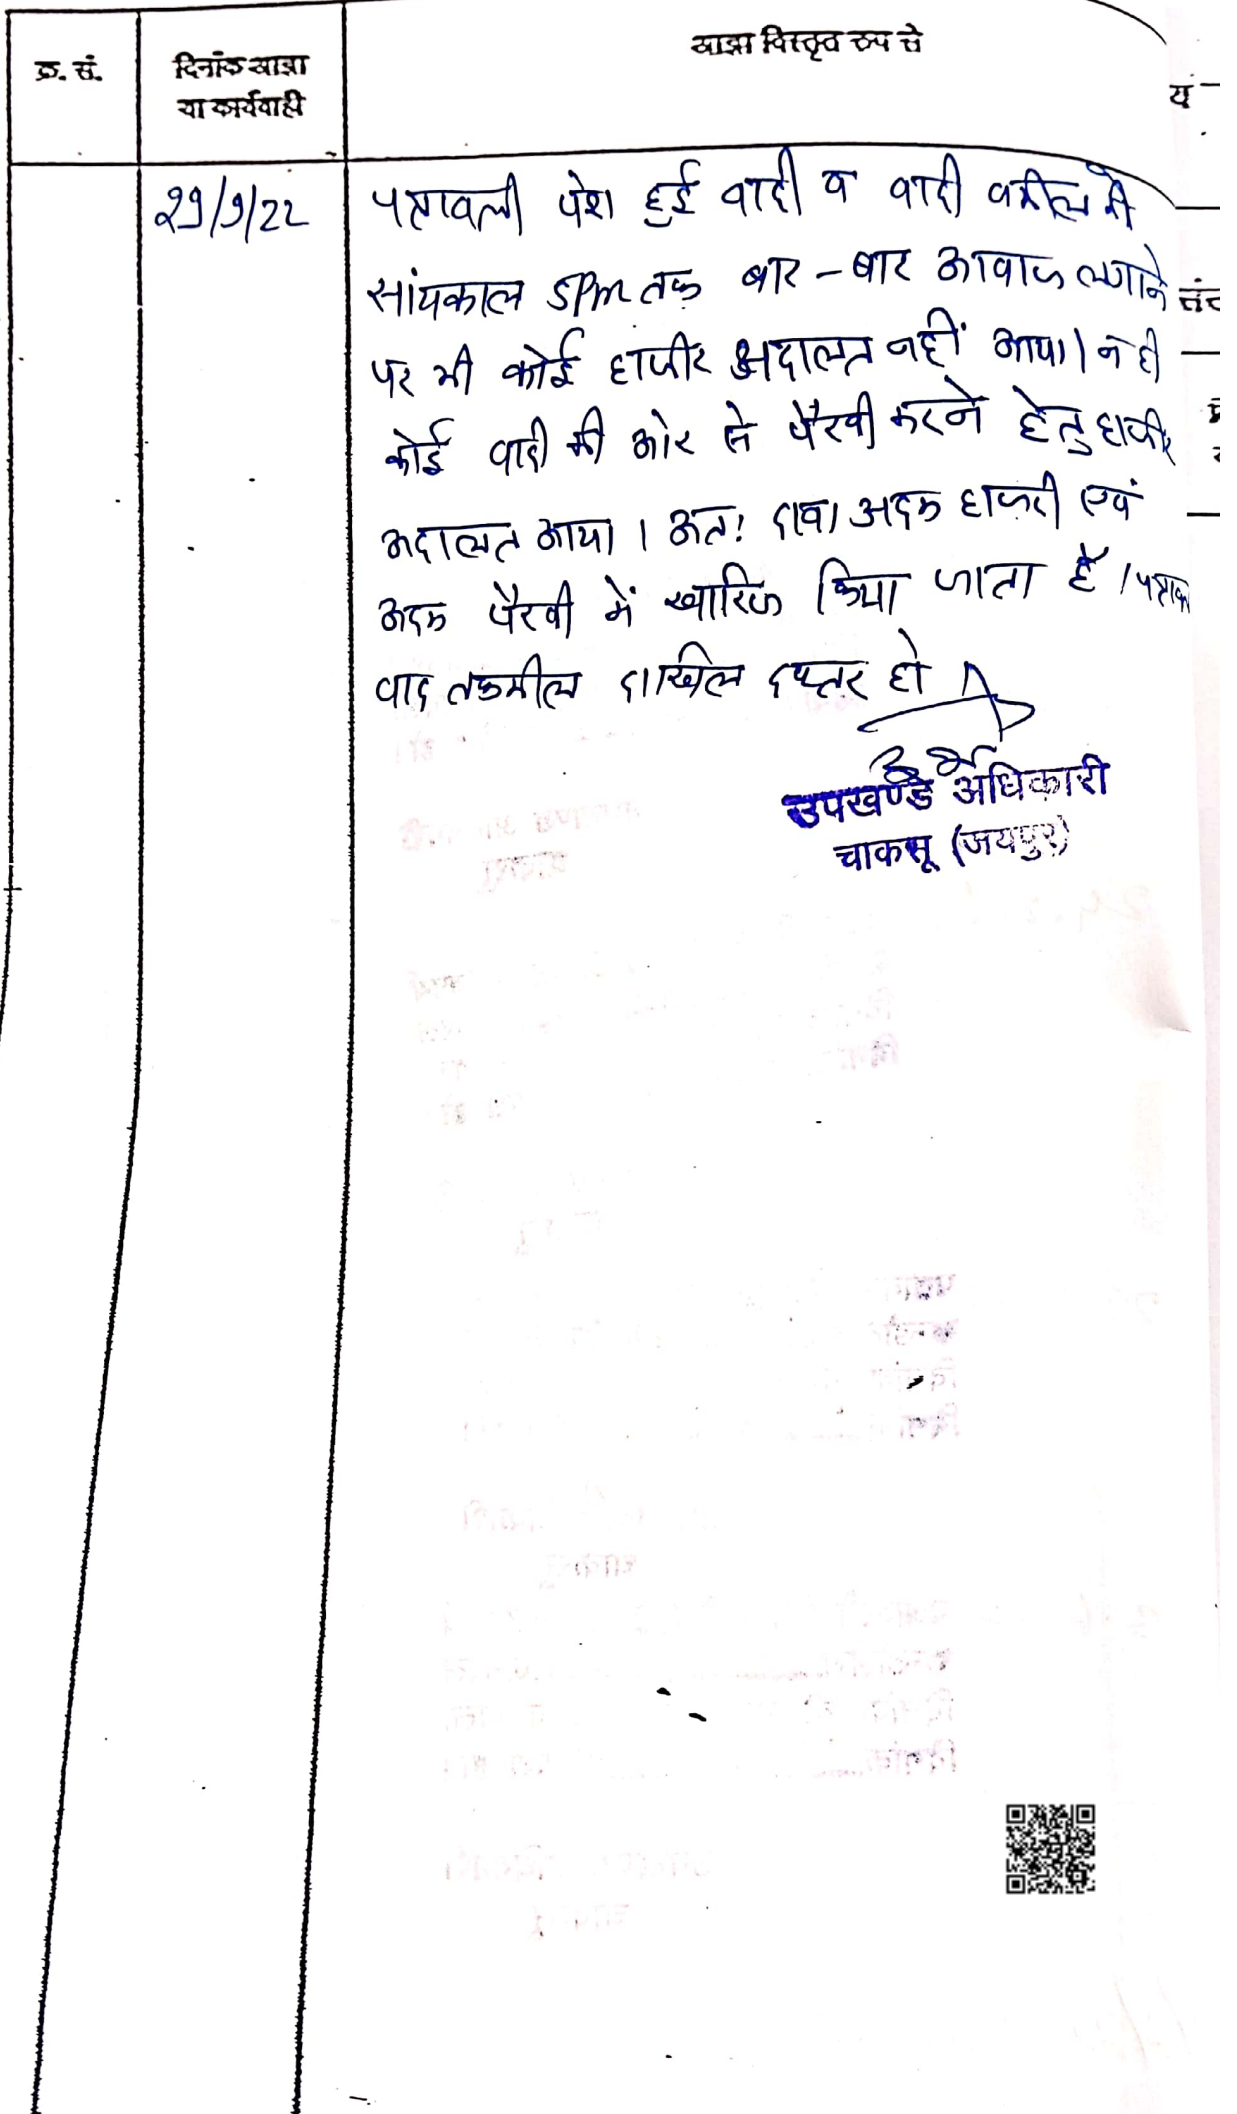 क्र. सं.
दिनांक आज्ञा
या कार्यवाही
आज्ञा विस्तृत रूप से
य
29/9/22
पत्रावली पेश हुई वादी व वादी वकील को
सांयकाल 5PM तक बार - बार आवाज लगाने
पर भी कोई हाजीर अदालत नहीं आया। न ही
कोई वादी की ओर से पैरवी करने हेतु हाजीर
अदालत आया । अतः दावा अदम हाजरी एवं
अदम पैरवी में खारिज किया जाता है ।
वाद तकमील दाखिल दफ्तर हो
उपखण्ड अधिकारी
चाकसू (जयपुर)